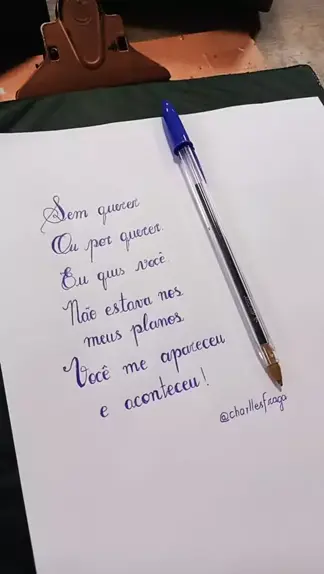 Sem querer
Ou por querer.
Eu quis você.
Não estava nos
meus planos
Você me apareceu
e aconteceu!
@charllesfraga